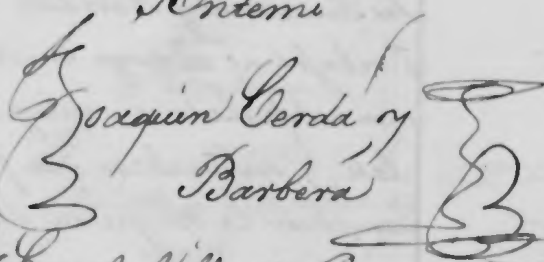 Antemi
Joaquin Cerdá y
Barberá